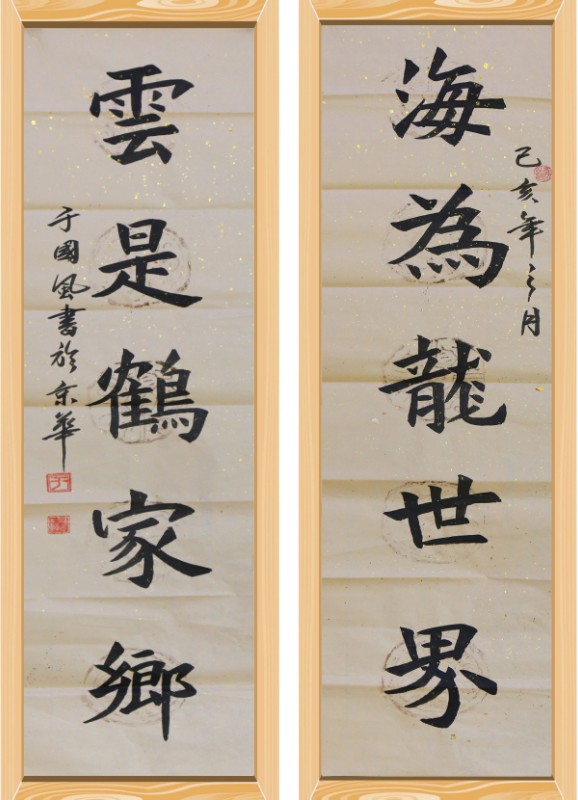 海為龍世界
己亥年三月
雲是鶴家鄉
于國風書於京華